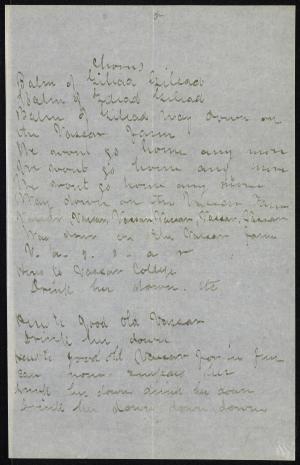 Chorus
Balm of Gilead Gilead
Balm of Gilead Gilead
Balm of Gilead way down on
the Vassar Farm
We wont go home any more
We wont go home any more
We wont go home any more
Way down on the Vassar Farm
Vassar Vassar, Vassar Vassar, Vassar, Vassar
Way down on the Vassar farm
V. a. s. s. a. r
Here's to Vassar College
Drink her down. etc
Here's to Good Old Vassar
Drink her down
Here's to good old Vassar for
her
Drink her down drink her down
Drink her down down down